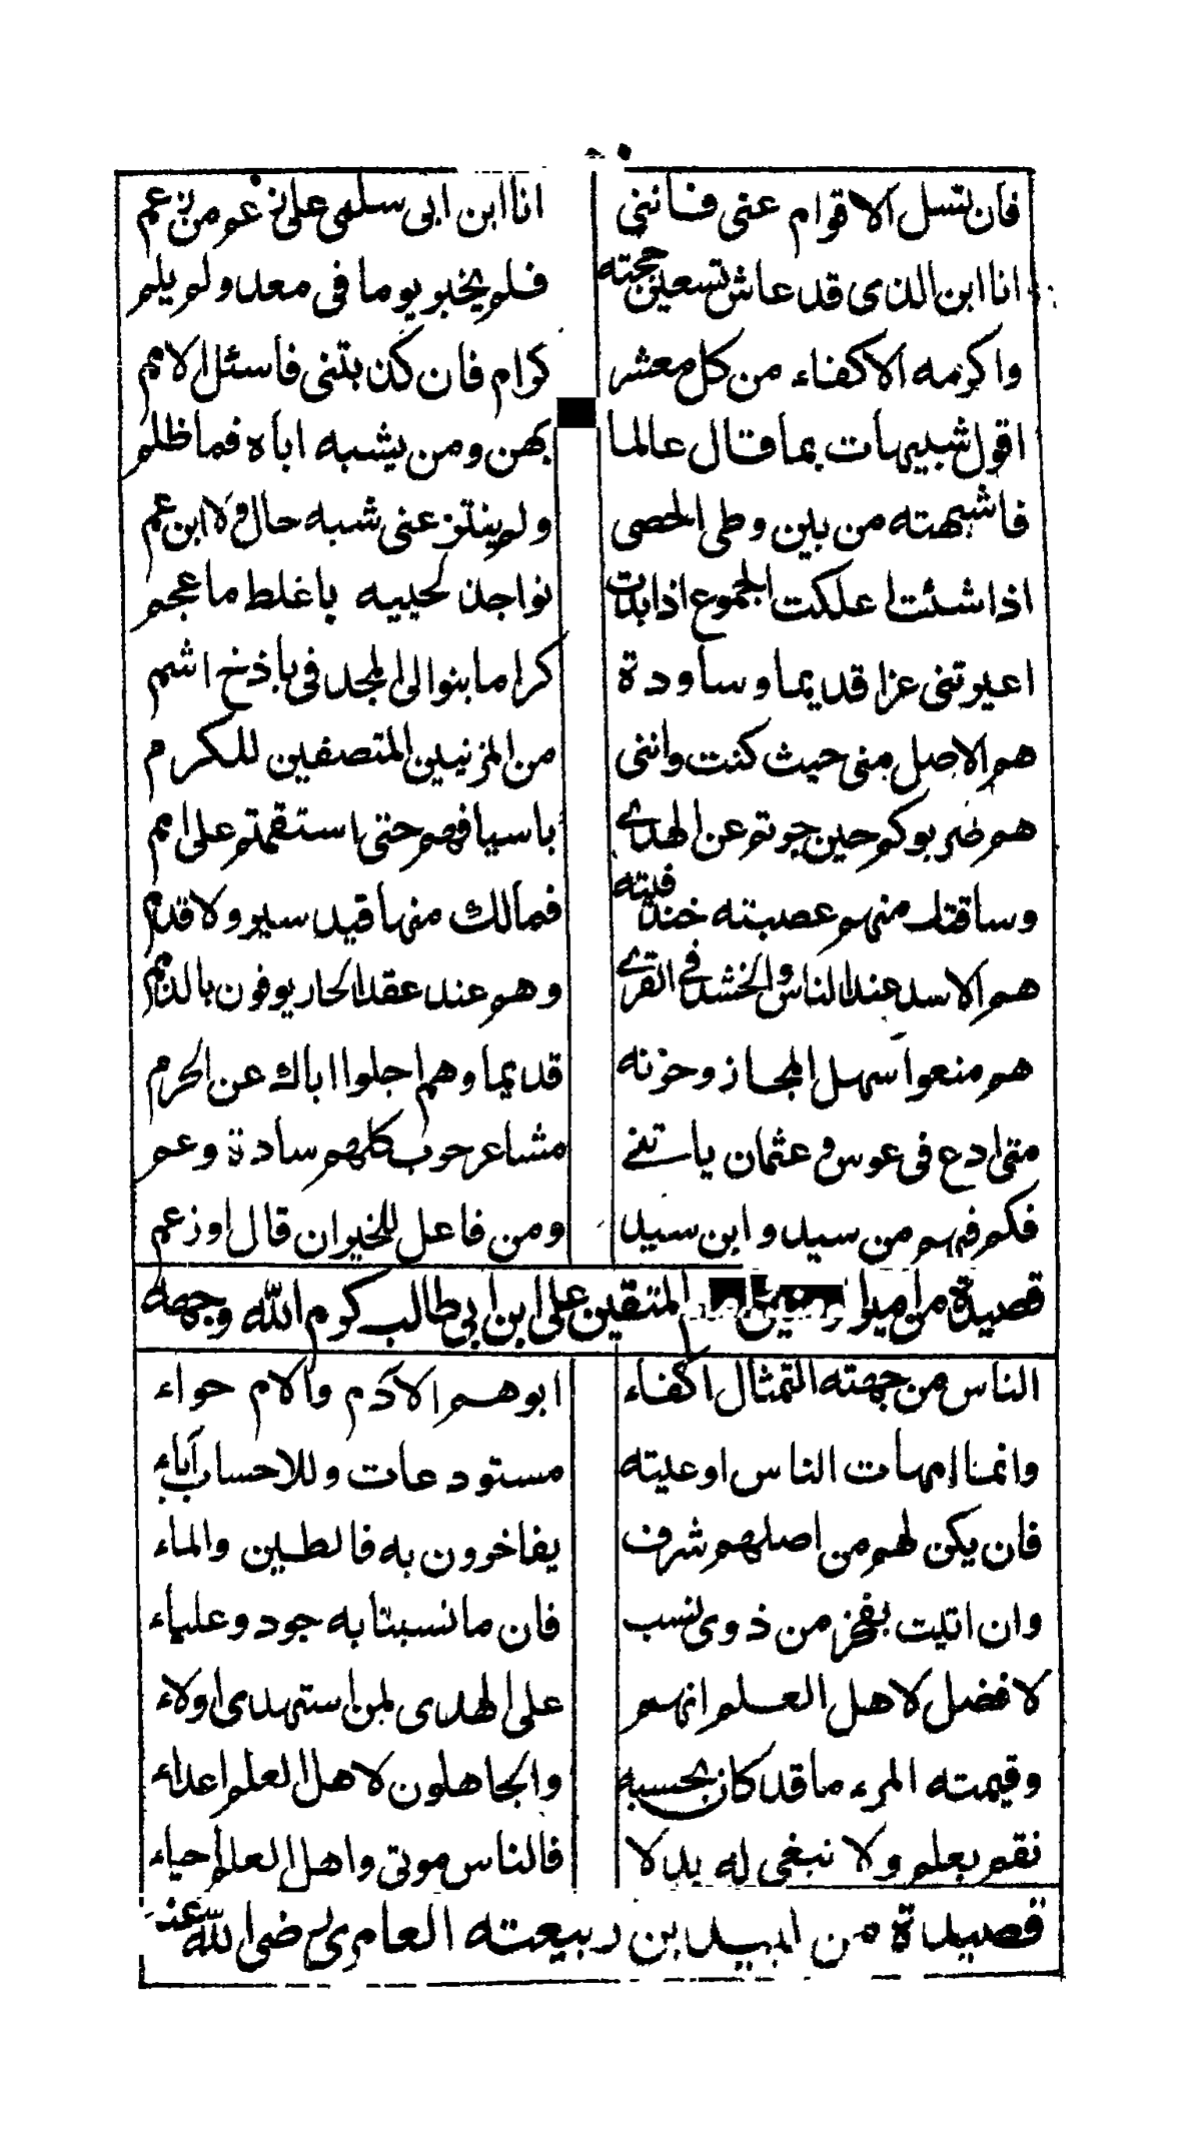 فان تسل الاقوام عنى فاننى انا ابن ابى سلمى على رغم من زعم
انا ابن الذى قد عاش تسعين حجته فلم يخبر يوما فى معد ولم يلم
واكرمه الاكفاء من كل معشر كرام فان كذبتنى فاسئل الامم
اقول شبيهات بما قال عالما بهن ومن يشبه اباه فما ظلم
فاشبهته من بين وطى الحصى ولم ينتزعنى شبه خال ولا ابن عم
اذا شئت اعلكت الجموع اذا بدت نواجذ لحييه باغلظ ما عجم
اعيرتنى عزا قديما وساودة كراما بنوا لى المجد فى باذخ اشم
هم الاصل منى حيث كنت واننى من المزنيين المتصفين للكرم
هم ضربوكم حين جرتم عن الهدى باسيافهم حتى استقمتم على امم
وساقتك منهم عصبته خندفيته فمالك منها قيد سير ولا قدم
هم الاسد عند الناس والخشد فى القرى وهم عند عقد الجار يوفون بالذمم
هم منعوا سهل المجاز وحزنه قديما وهم اجلوا اباك عن الحرم
متى ادع فى عوس و عثمان ياتنى مشاعر حرب كلهم سادة وعم
فكم فهم من سيد وابن سيد ومن فاعل للخيران قال او زعم
قصيدة من المتقين على ابن ابى طالب كرم الله وجهه
الناس من جهته التمثال اكفاء ابوهم الآدم والام حواء
وانما امهات الناس اوعيته مستودعات وللاحساب آباء
فان يكن لهم من اصلهم شرف يفاخرون به فالطين والماء
وان اتيت بفخر من ذوى نسب فان ما نسبتنا به جود وعلياء
لا فضل لاهل العلم انهم على الهدى لمن استهدى اولاء
وقيمته المرء ما قد كان يحسبه والجاهلون لاهل العلم اعداء
نقم بعلم ولا نبغى له بدلا فالناس موتى واهل العلم احياء
قصيدة من لبيد بن ربيعته العامرى رضى الله عنه